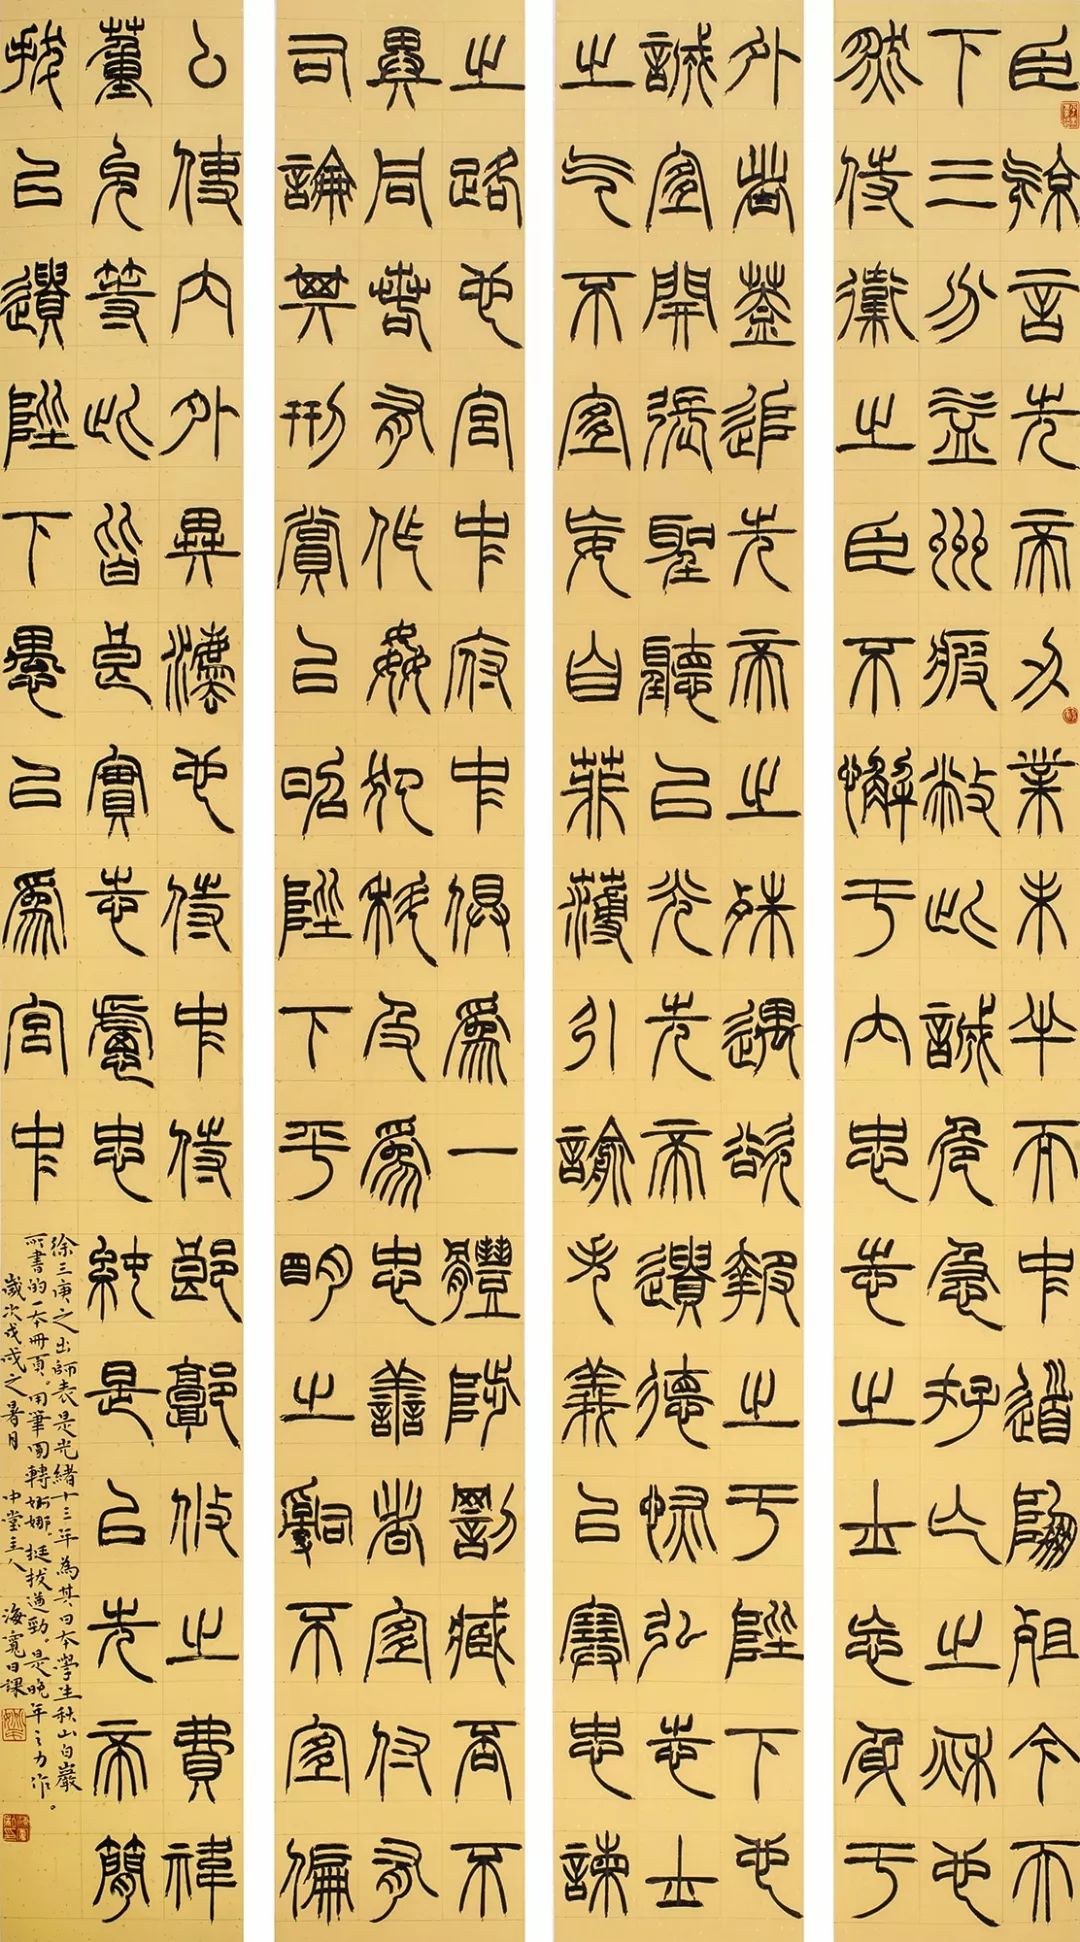 臣諒言先帝刅業未半而中道崩殂今天
下三分益州疲敝此誠危急存亡之秋也
然侍衞之臣不懈于內忠志之士忘身于
外者蓋追先帝之殊遇欲報之于陛下也
誠宜開張聖聽以光先帝遺德恢弘志士
之气不宜妄自菲薄引諭失義以塞忠諫
之路也宮中府中俱為一體陟罰臧否不
異同若有作姦犯科及為忠善者宜付有
司論其刑賞以昭陛下平明之𤔲不宜偏
厶使內外異灋也侍中侍郎郭攸之費禕
董允等此皆良實志慮忠純是以先帝簡
拔以遺陛下愚以為宮中
徐三庚之出師表是光緒十三年為其日本學生秋山白巖
所書的一本冊頁。用筆圓轉婀娜。挺拔遒勁。是晚年之力作。
歲次戊戌之暑月 中堂主人 海寬日課